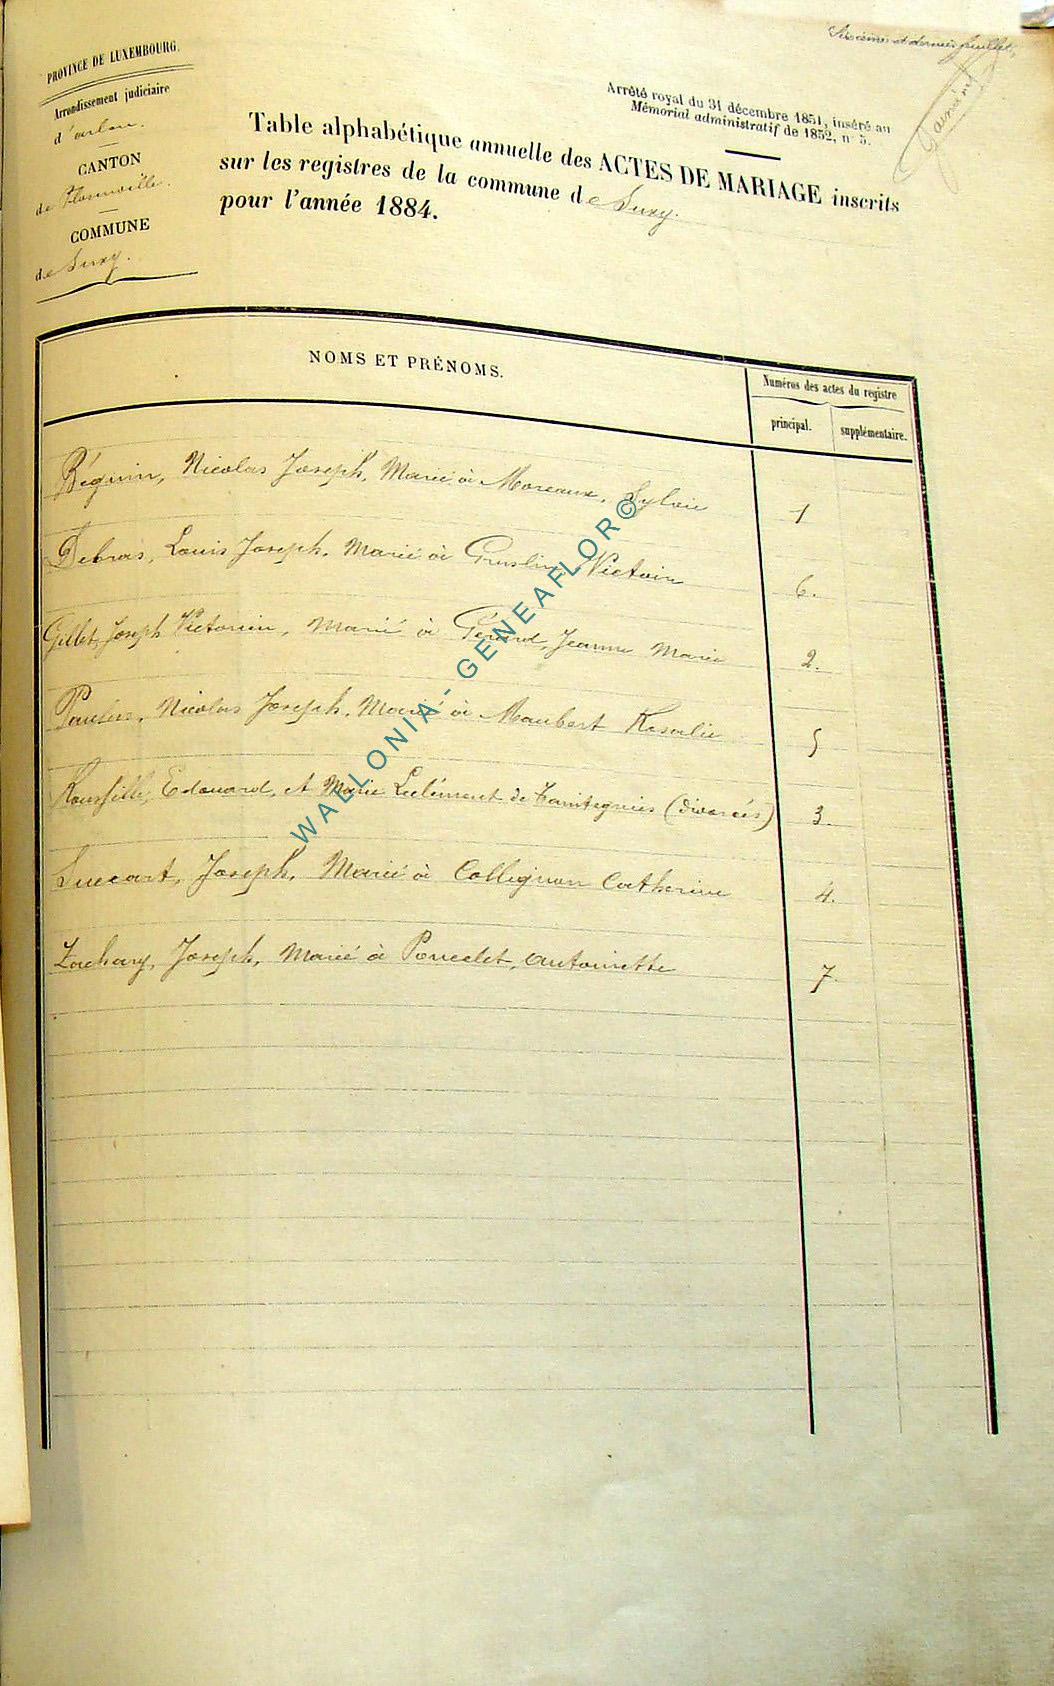 Sixième et dernier feuillet.
PROVINCE DE LUXEMBOURG.
Arrondissement judiciaire
d'arlon.
CANTON
de Florenville.
COMMUNE
de Suxy.
Arrêté royal du 31 décembre 1851, inséré au
Mémorial administratif de 1852, n° 5.
Table alphabétique annuelle des ACTES DE MARIAGE inscrits
sur les registres de la commune de Suxy.
pour l'année 1884.
NOMS ET PRÉNOMS.
Numéros des actes du registre
principal.
supplémentaire.
Béguin, Nicolas Joseph, Marié à Moreaux, Sylvie 1
Debras, Louis Joseph. Marié à Victoire 6.
Gillet, Joseph Victorien, Marié à Gérard, Jeanne Marie 2.
Nicolas Joseph, Marié à Maubert Rosalie 5
Edouard, et Marie de (divorcés) 3.
Joseph, Marié à Collignon Catherine 4.
Zachary, Joseph, Marié à Poncelet, Antoinette 7.
WALLONIA - GENEAFLOR©